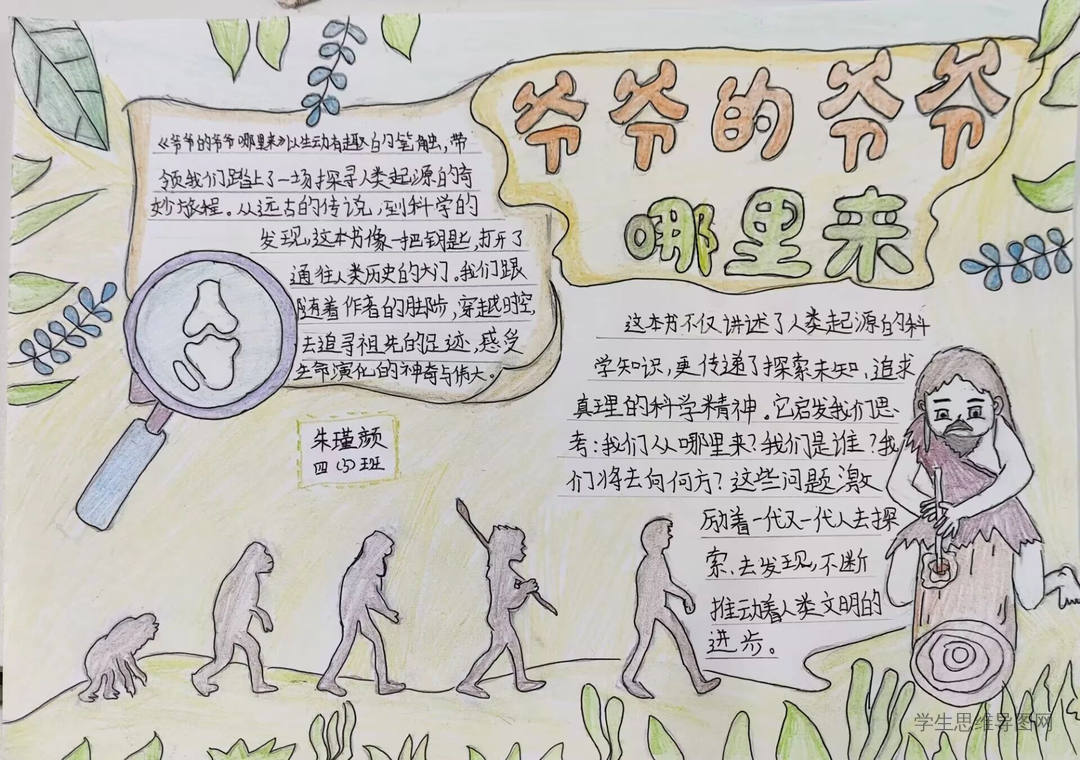 爷爷的爷爷
哪里来
《爷爷的爷爷哪里来》以生动有趣的笔触,带
领我们踏上了一场探寻人类起源的奇
妙旅程。从远古的传说,到科学的
发现,这本书像一把钥匙,打开了
通往人类历史的大门。我们跟
随着作者的脚步,穿越时空,
去追寻祖先的足迹,感受
生命演化的神奇与伟大。
朱瑾颜
四(5)班
这本书不仅讲述了人类起源的科
学知识,更传递了探索未知、追求
真理的科学精神。它启发我们思
考:我们从哪里来?我们是谁?我
们将去向何方?这些问题激
励着一代又一代人去探
索、去发现,不断
推动着人类文明的
进步。
学生思维导图网